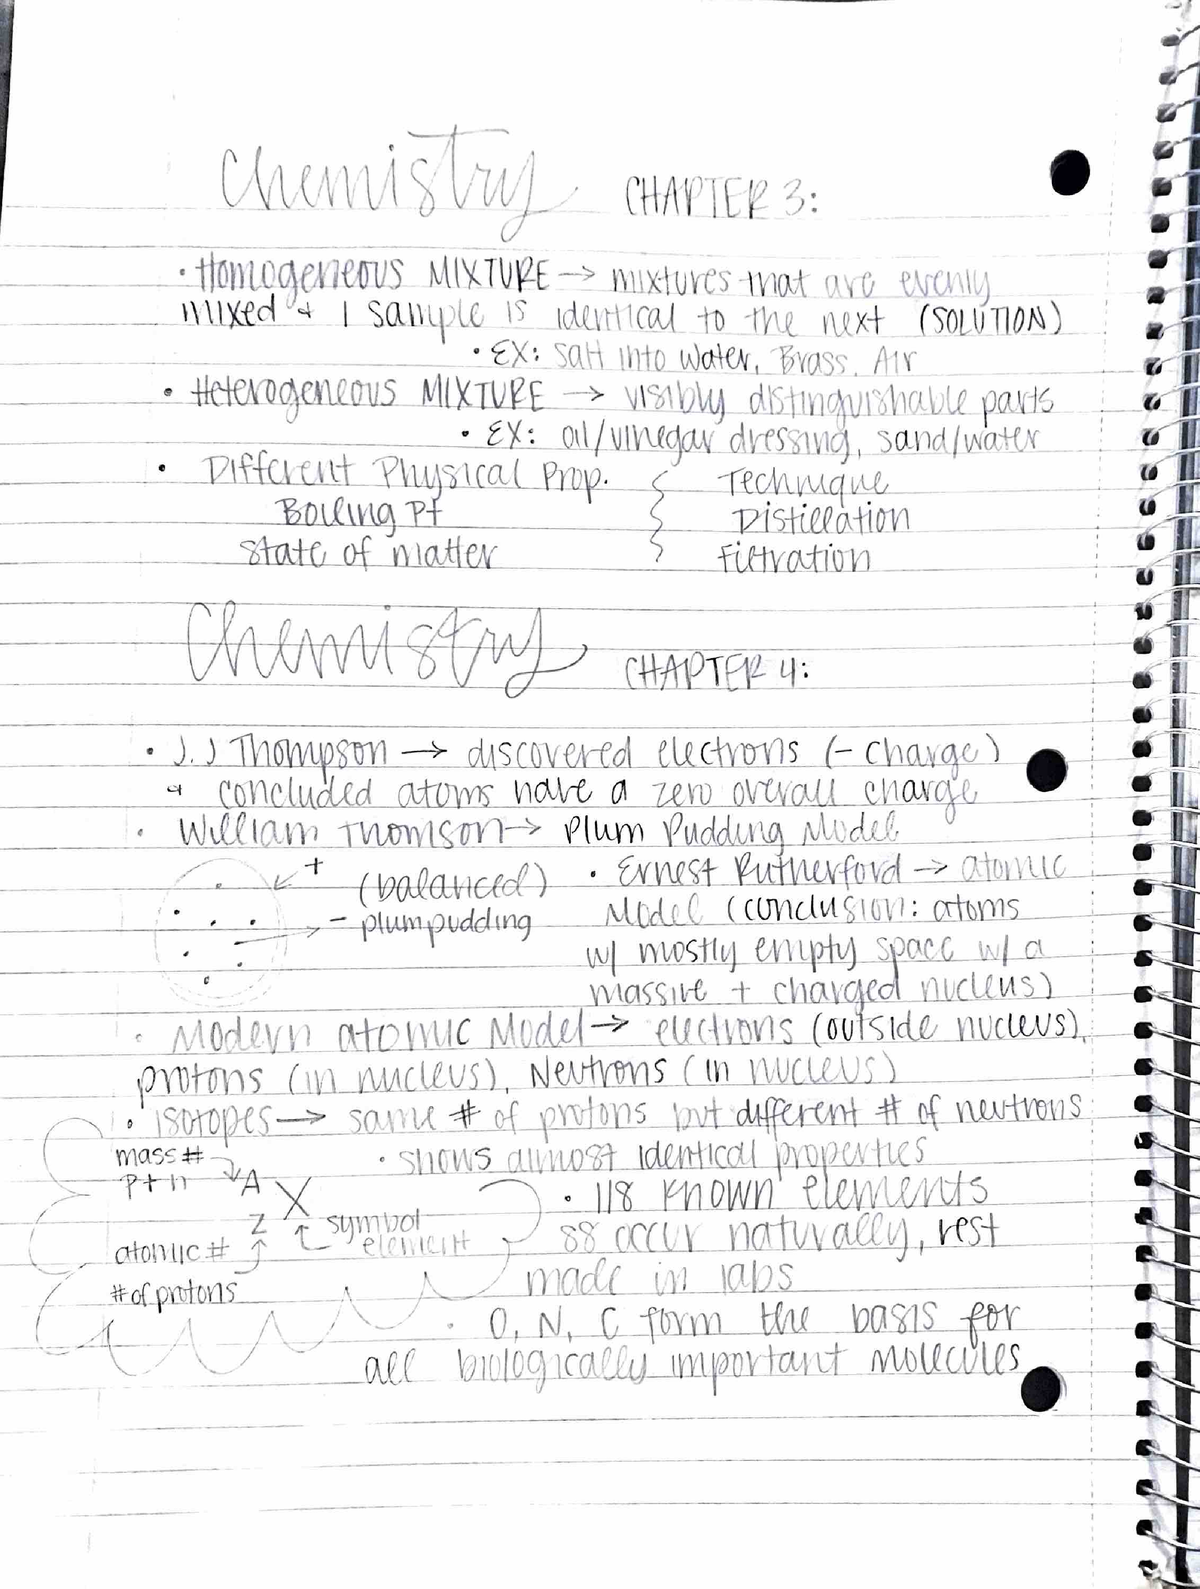 Chemistry CHAPTER 3:
• Homogeneous MIXTURE → mixtures that are evenly
mixed & 1 sample is identical to the next (SOLUTION)
• EX: salt into water, Brass. Air
• Heterogeneous MIXTURE → visibly distinguishable parts
• EX: oil/vinegar dressing, sand/water
• Different Physical Prop. Technique
Boiling Pt Distillation
State of matter Filtration
Chemistry CHAPTER 4:
• J.J Thompson → discovered electrons (- charge)
& concluded atoms have a zero overall charge
• William Thomson → Plum Pudding Model
+ (balanced)
- plum pudding
• Ernest Rutherford → atomic
Model (conclusion: atoms
w/ mostly empty space w/ a
massive + charged nucleus)
• Modern atomic Model → electrons (outside nucleus),
protons (in nucleus), Neutrons (in nucleus)
• isotopes → same # of protons but different # of neutrons
• shows almost identical properties
mass #
p + n → A X
Z symbol
element
atomic #
# of protons
• 118 known elements
88 occur naturally, rest
made in labs
• O, N, C form the basis for
all biologically important molecules